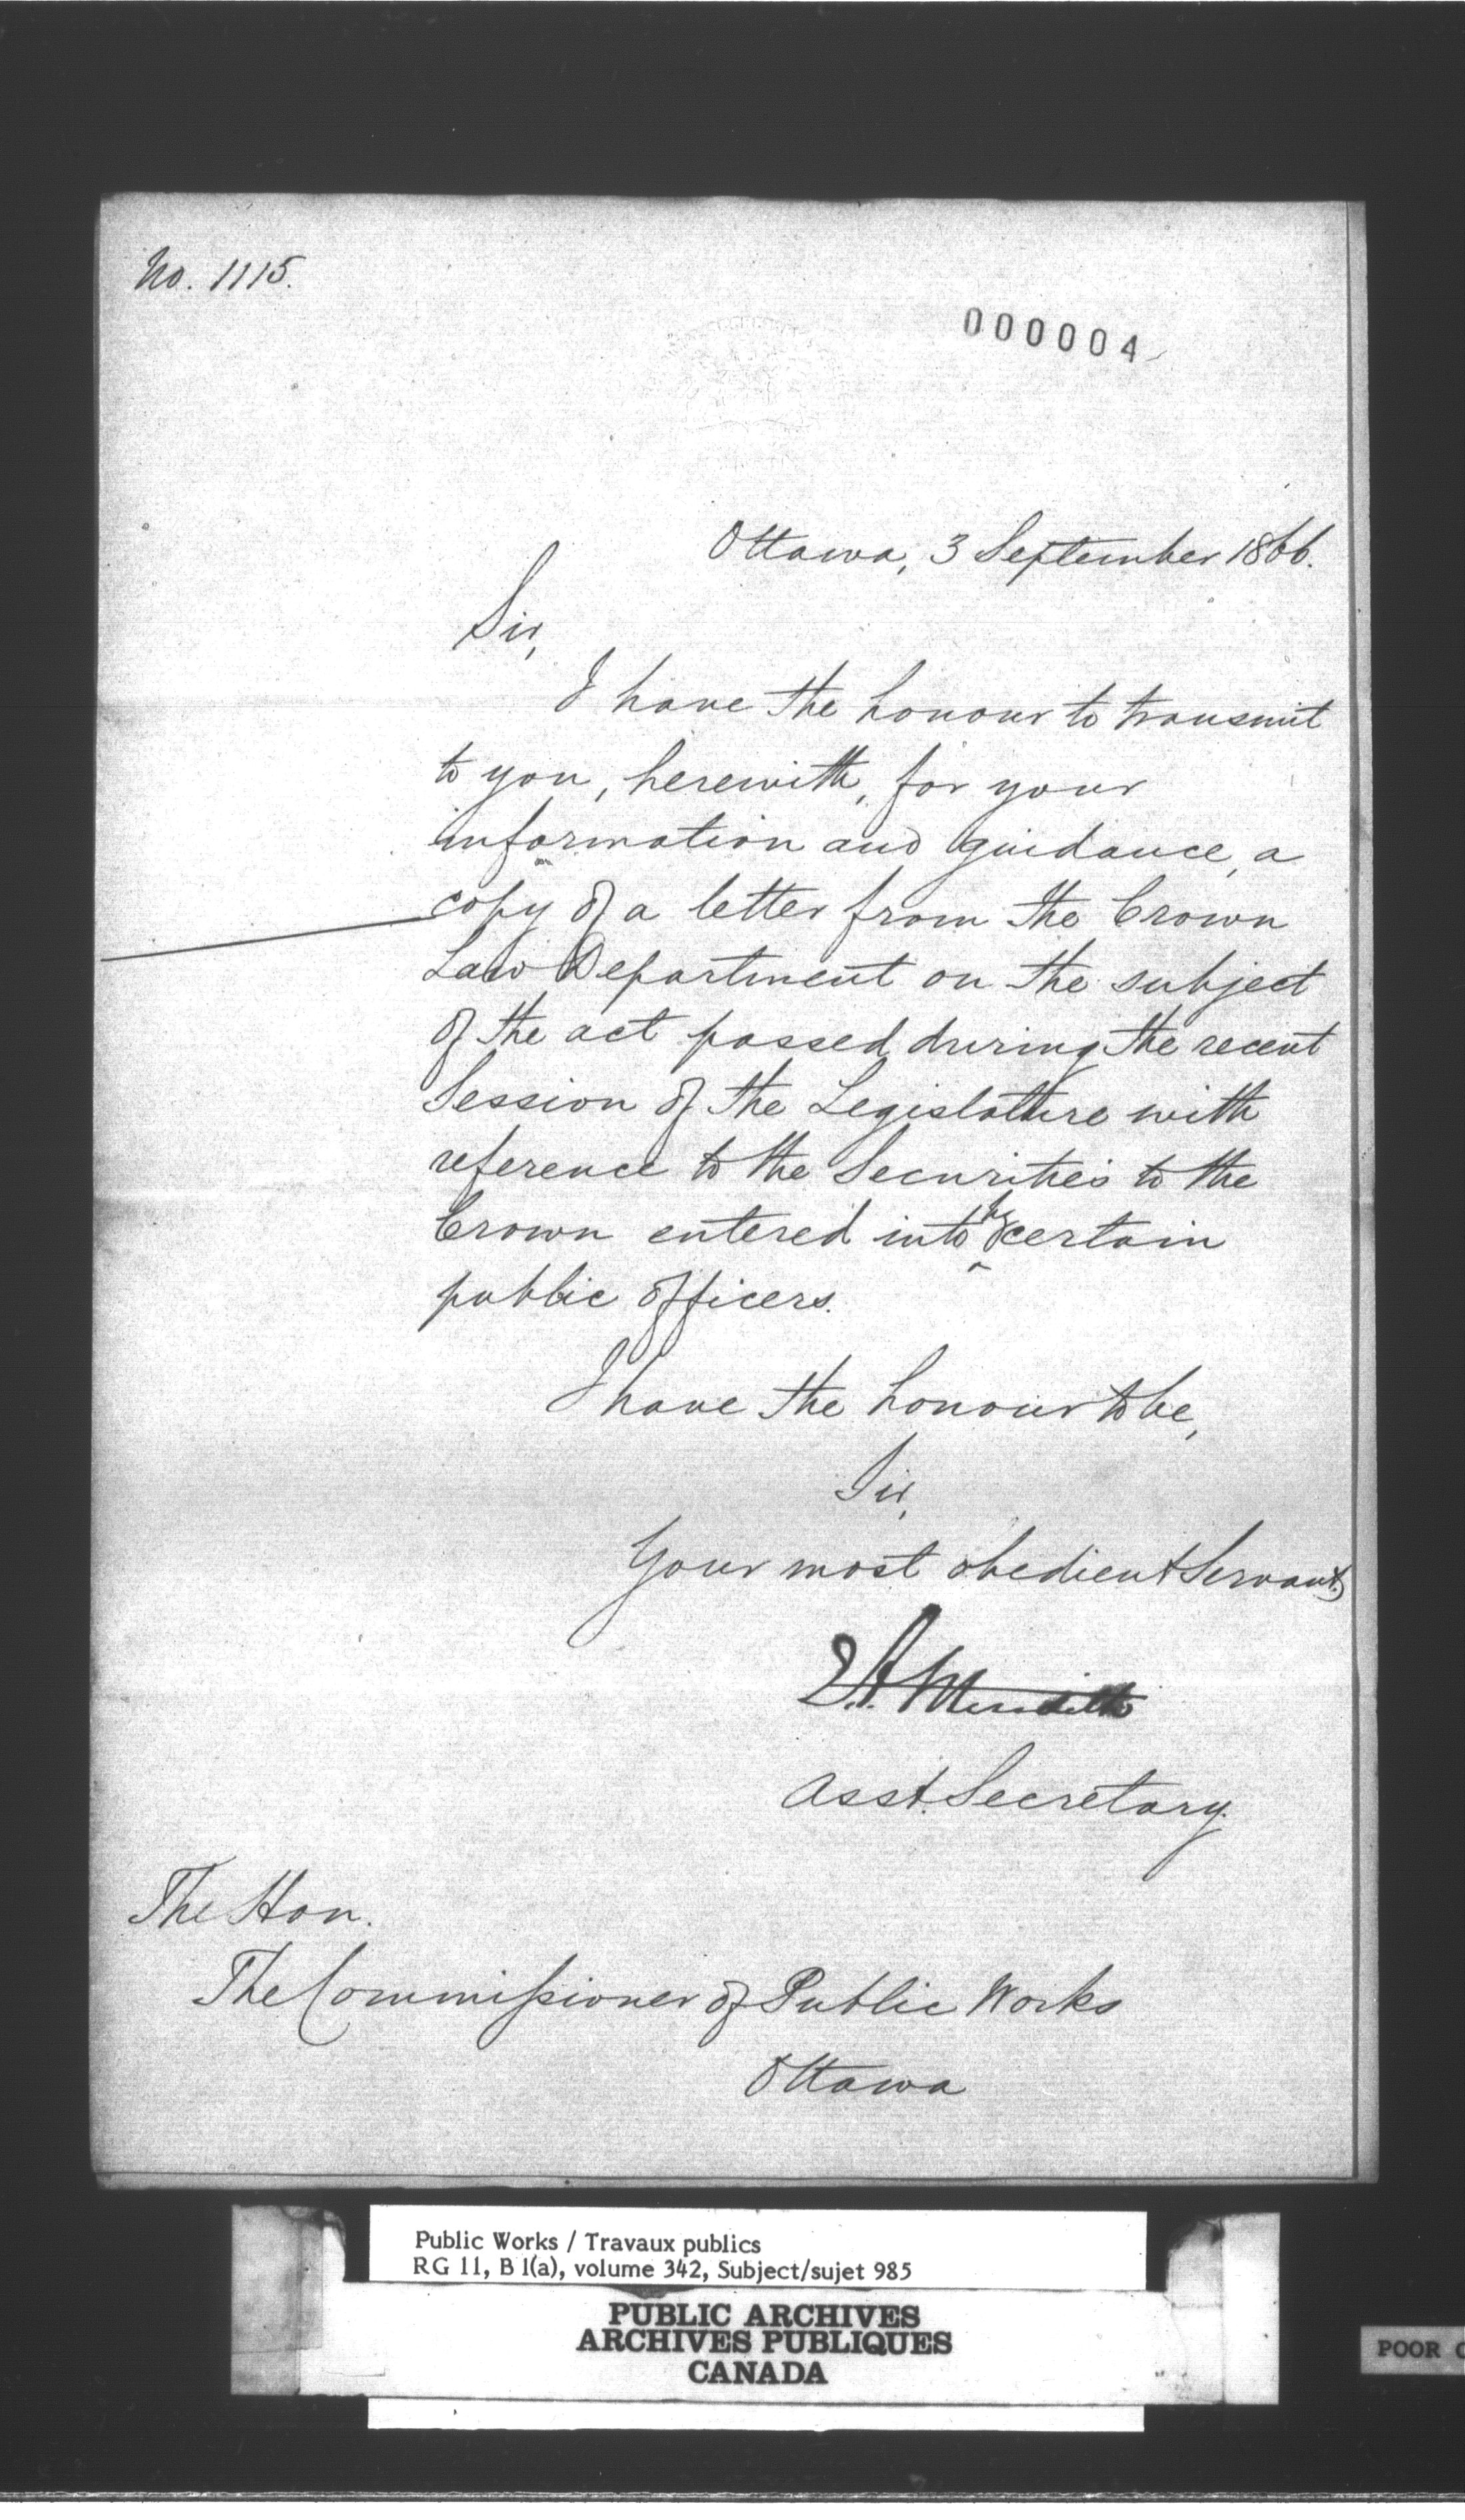 No. 1115.
000004
Ottawa, 3 September 1866.
Sir,
I have the honour to transmit
to you, herewith, for your
information and guidance, a
copy of a letter from the Crown
Law Department on the subject
of the act passed during the recent
Session of the Legislature with
reference to the Securities to the
Crown entered into by certain
public officers.
I have the honour to be,
Sir,
Your most obedient Servant,
E.A. Meredith
Asst. Secretary.
The Hon.
The Commissioner of Public Works
Ottawa
Public Works / Travaux publics
RG 11, B 1(a), volume 342, Subject/sujet 985
PUBLIC ARCHIVES
ARCHIVES PUBLIQUES
CANADA
POOR C